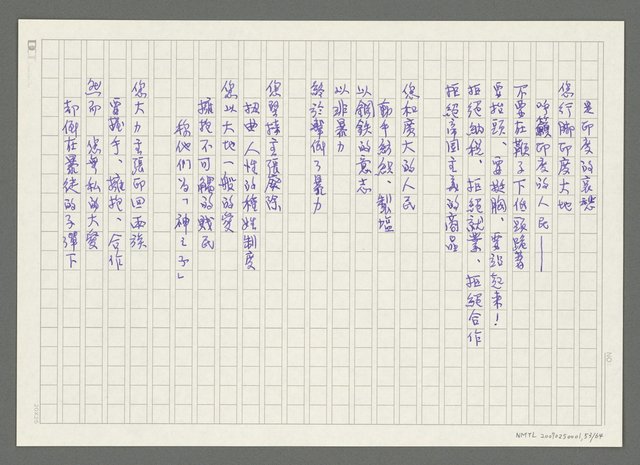 是印度的哀愁
您行腳印度大地
呼籲印度的人民——
不要在鞭子下低頭跪著
要抬頭、要挺胸、要站起來！
拒絕納稅、拒絕就業、拒絕合作
拒絕帝國主義的商品
您和廣大的人民
動手紡織、製鹽
以鋼鐵的意志
以非暴力
終於擊倒了暴力
您堅持主張廢除
扭曲人性的種姓制度
您以大地一般的愛
擁抱不可觸的賤民
稱他們為「神之子」
您大力主張印回兩族
要握手、擁抱、合作
然而 您無私的大愛
却倒在暴徒的子彈下
NO
20X25
NMTL 20090250001, 53/64